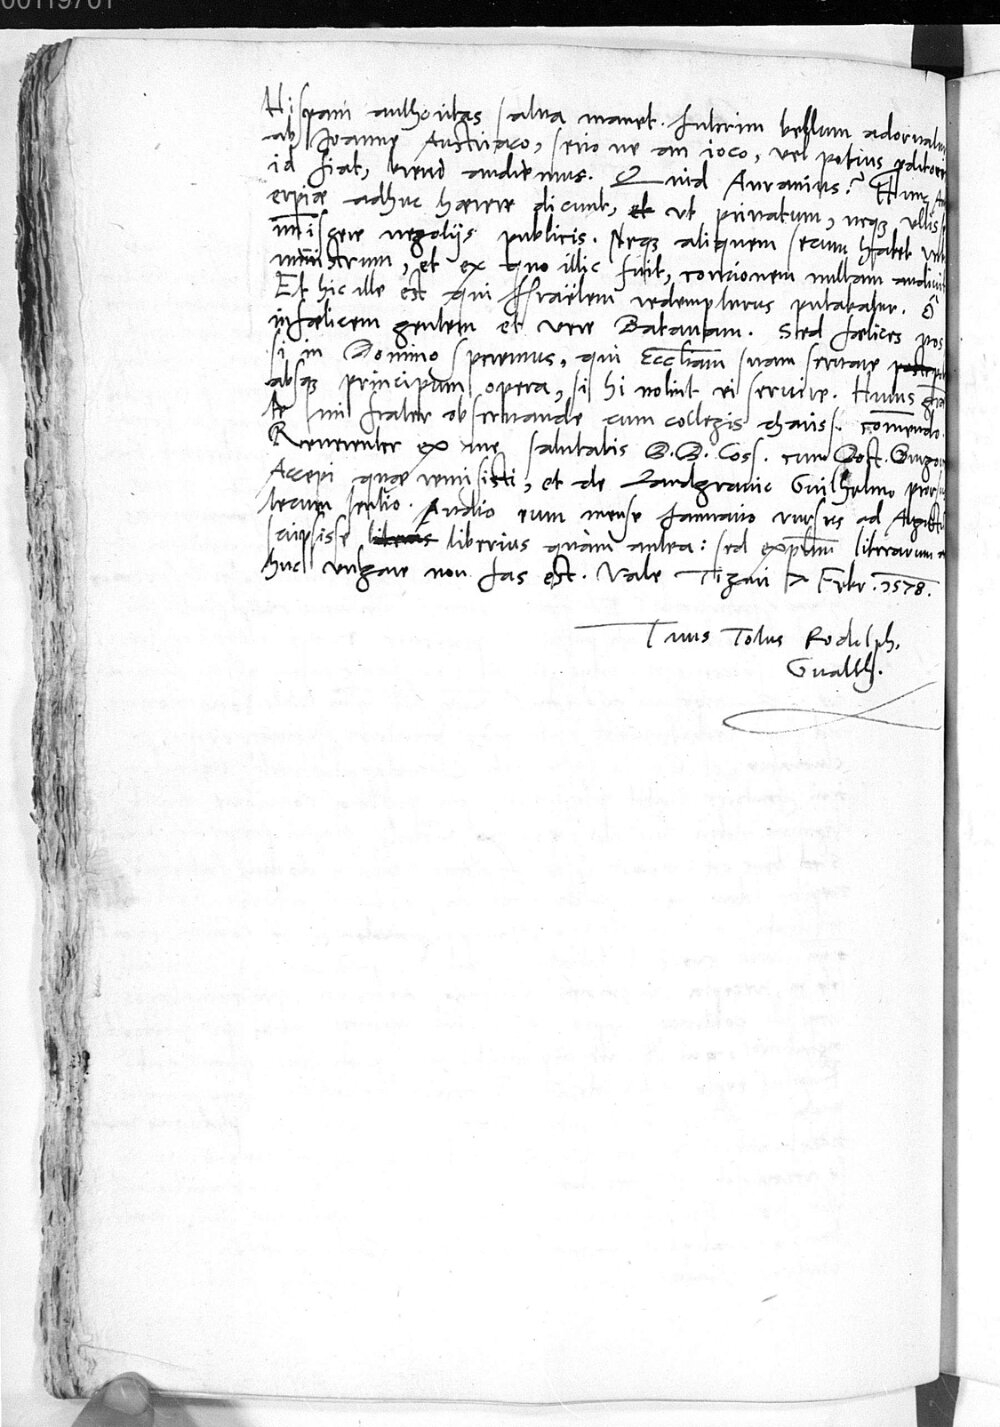 00119701
Hispani authoritas salva manet. Interim bellum adornatur
ab Joanne Austriaco, serio ne an ioco, vel potius proditorie
id fiat, brevi audiemus. Quid Auranius? Hunc
adhuc haerere dicunt, et ut privatum, neque ullis se
miscere negotijs publicis. Neque aliquem secum habet verbi
ministrum, et ex quo illic fuit, concionem nullam audivit
Et hic ille est qui Israëlem redempturus putabatur. ô
infaelicem gentem et vere Batavam. Sed faelices nos
si in Domino speremus, qui Ecclesiam suam servare
absque principum opera, si hi nolint ei servire. Huius
te mi frater observande cum collegis chariss. commendo.
Reverenter ex me salutatis D.D. Coss. cum Doct.
Accepi quae remisisti, et de Landgravio Guilhelmo prorsus
tecum sentio. Audio eum mense Januario rursus ad
scripsisse literas liberius quàm antea: sed exemplum literarum ad
huc vulgare non fas est. Vale Tiguri 7 Febr. 1578.
Tuus Totus Rodolph.
Gualth.